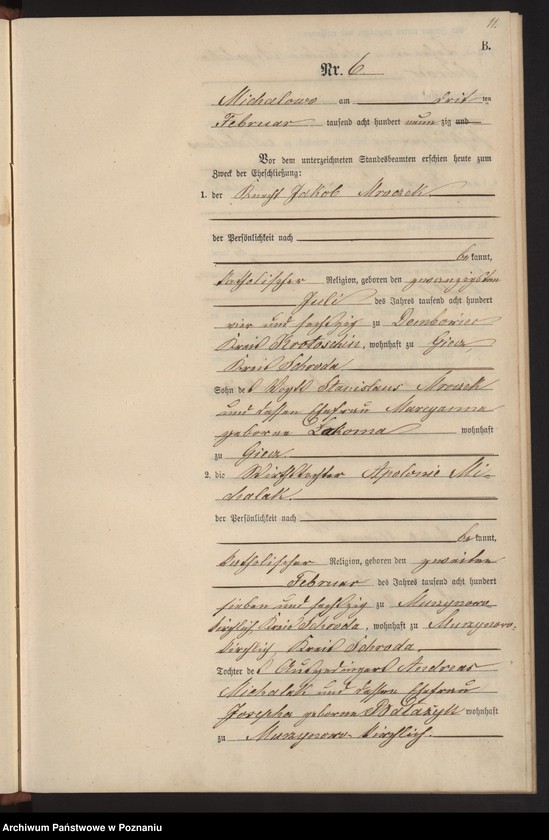 11.
B.
Nr. 6.
Michalowo am drit ten
Februar tausend acht hundert neun zig und
Vor dem unterzeichneten Standesbeamten erschien heute zum
Zweck der Eheschließung:
1. der Knecht Jakób Mroczek
der Persönlichkeit nach
be kannt,
katholischer Religion, geboren den zwanzigsten
Juli des Jahres tausend acht hundert
vier und sechszig zu
Kreis Krotoschin, wohnhaft zu Giecz,
Kreis Schroda
Sohn des Vogts Stanislaus Mroczek
und dessen Ehefrau Maryanna
geborene Lakoma wohnhaft
zu Giecz.
2. die Wirthstochter Apolonie Mi-
chalak.
der Persönlichkeit nach
be kannt,
katholischer Religion, geboren den zweiten
Februar des Jahres tausend acht hundert
sieben und sechszig zu Murzynowo
kirchlich, Kreis Schroda, wohnhaft zu Murzynowo-
kirchlich Kreis Schroda,
Tochter des Auszüngers Andreas
Michalak und dessen Ehefrau
Josepha geborene wohnhaft
zu Murzynowo-kirchlich.
Archiwum Państwowe w Poznaniu